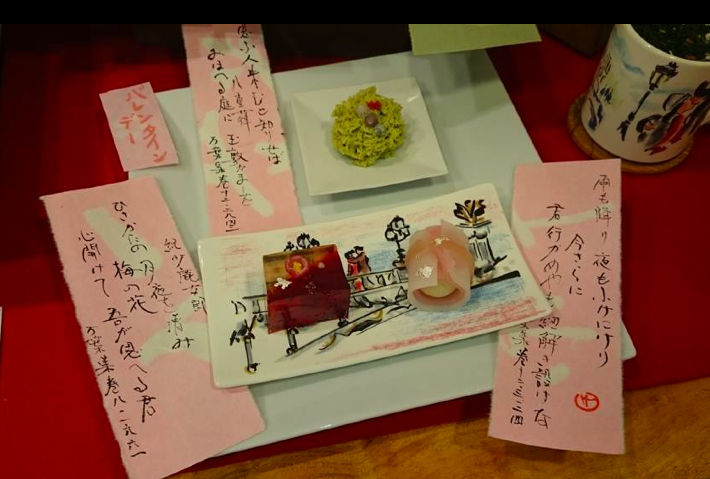 バレンタイン
デー
思ふ人来むと知りせば
八重葎
おほへる庭に
玉敷かましを
紀少鹿女郎
ひさかたの月夜を清み
梅の花
心開けて吾が思へる君
万葉集巻八 一六六一
雨も降り夜もふけにけり
今さらに
君行かめやも紐解き設けな